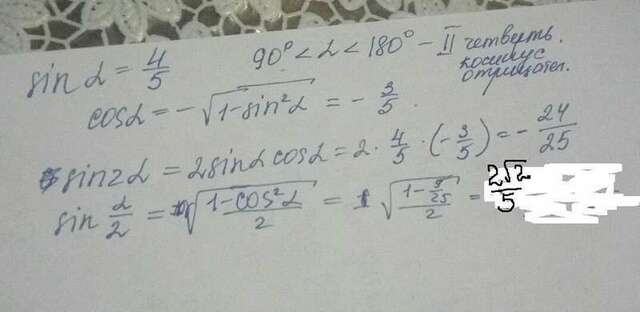 sin α = 4/5 90° < α < 180° – II четверть.
косинус
отрицател.
cos α = -√(1-sin²α) = -3/5.
sin2α = 2sinα cosα = 2 · 4/5 · (-3/5) = -24/25
sin α/2 = √((1-cos²α)/2) = √((1-9/25)/2) = 2√2/5